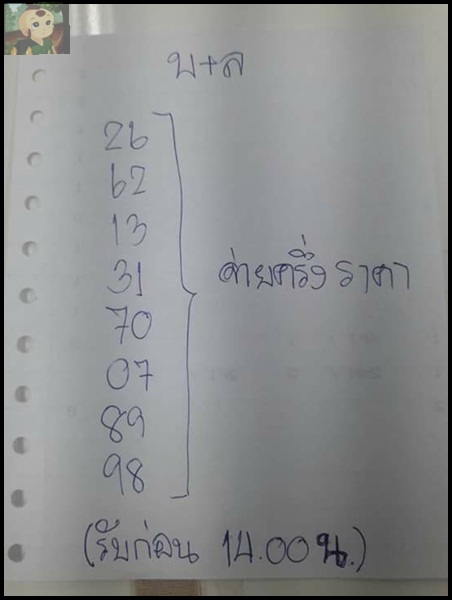 บ+ล
26
62
13
31
70
07
89
98
จ่ายครึ่งราคา
(รับก่อน 14.00 น.)